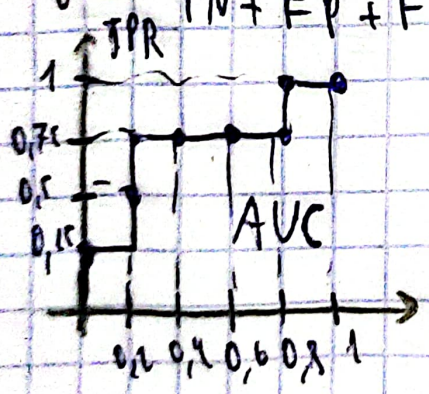 TN + FP + F
TPR
1
0,75
0,5
0,25
AUC
0,2 0,4 0,6 0,8 1